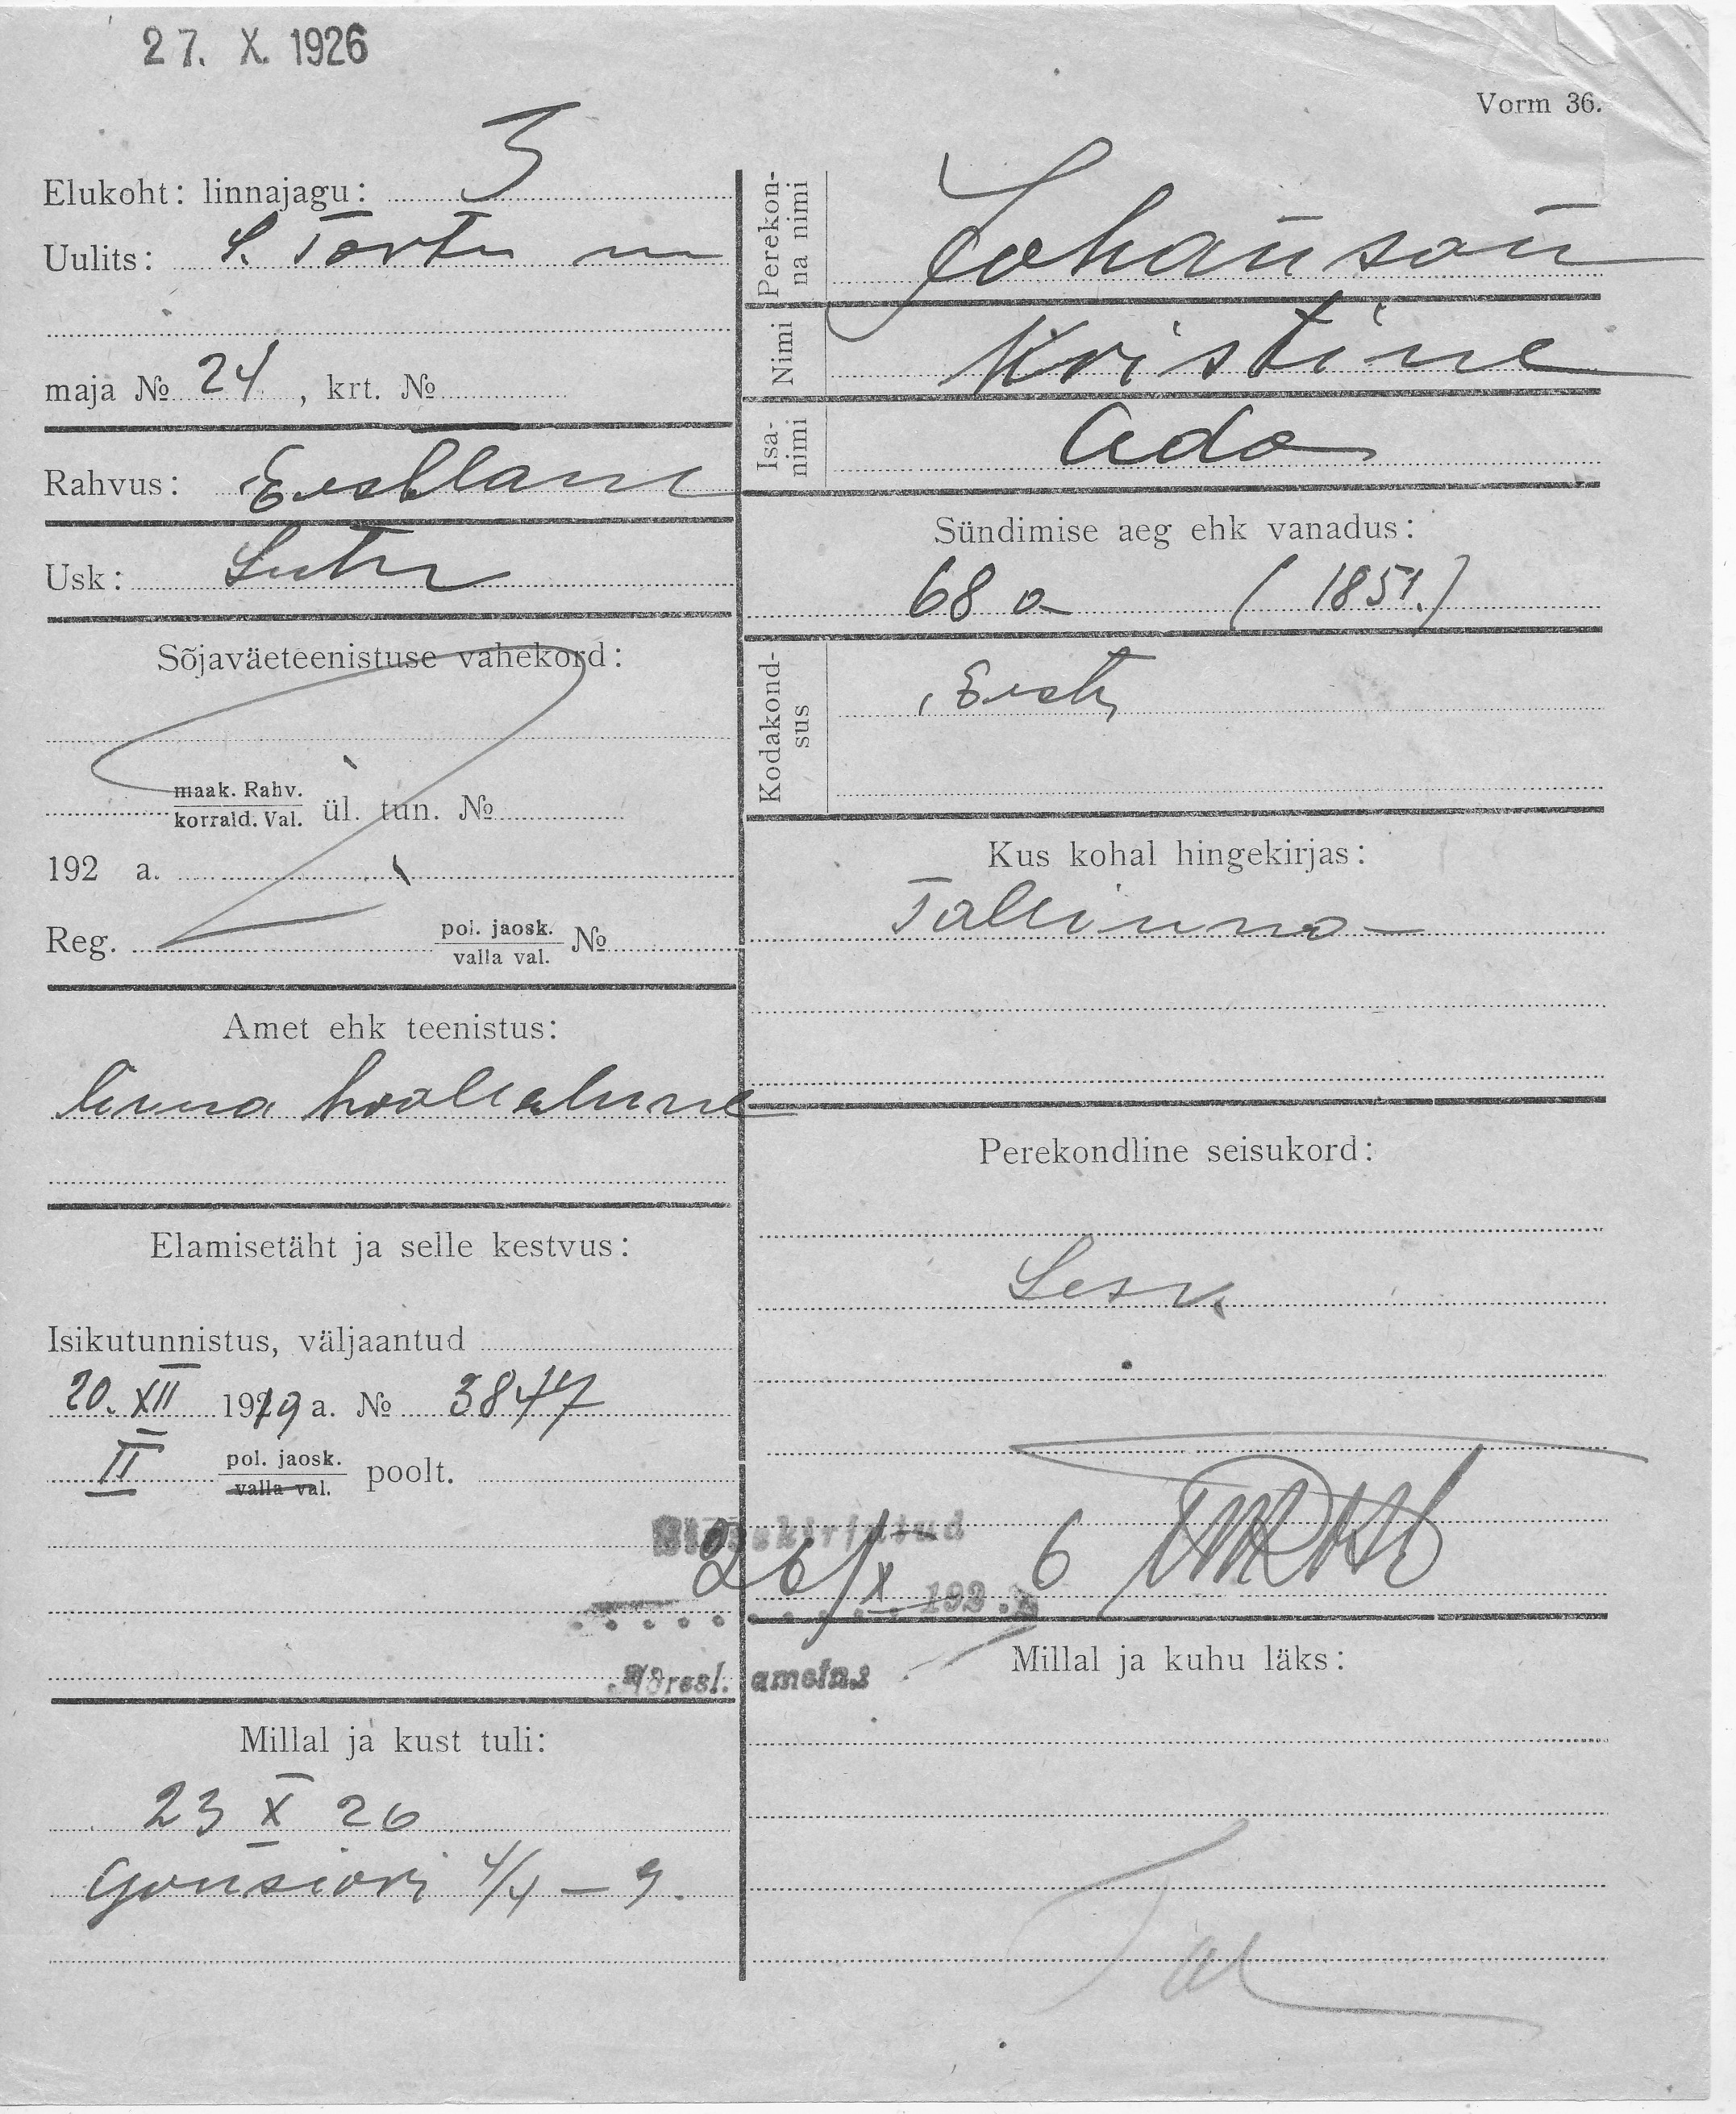 27. X. 1926
Vorm 36.
Elukoht: linnajagu: 3
Uulits: S. Tartu m
maja № 24, krt. №
Rahvus: Eestlane
Usk: Luth
Sõjaväeteenistuse vahekord:
maak. Rahv.
korrald. Val. ül. tun. №
192 a.
Reg. pol. jaosk.
valla val. №
Amet ehk teenistus:
linna hoolealune
Elamisetäht ja selle kestvus:
Isikutunnistus, väljaantud
20. XII 1919 a. № 3847
II pol. jaosk.
valla val. poolt.
Millal ja kust tuli:
23 X 26
Gonsiori 4/4 – 9.
Perekon-
na nimi
Johanson
Nimi
Kristine
Isa-
nimi
Ado
Sündimise aeg ehk vanadus:
68 a (1851.)
Kodakond-
sus
Eesti
Kus kohal hingekirjas:
Tallinna
Perekondline seisukord:
Lesk
26/X 192 6
Adresl. ametn.
Millal ja kuhu läks: